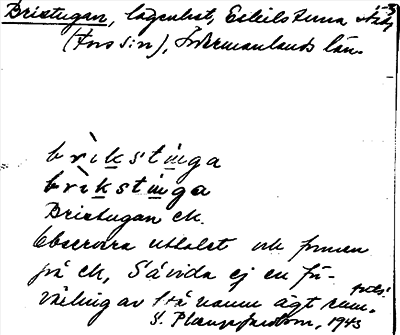 Brixtugan, lägenhet, Eskilstuna stad
(Fors sn), Södermanlands län.
brìkstu̇ga
brìkstu̇ga
Brixtugan ek.
Observera uttalet och formen
på ek, Såvida ej en för-
växling av två namn ägt rum.
1943